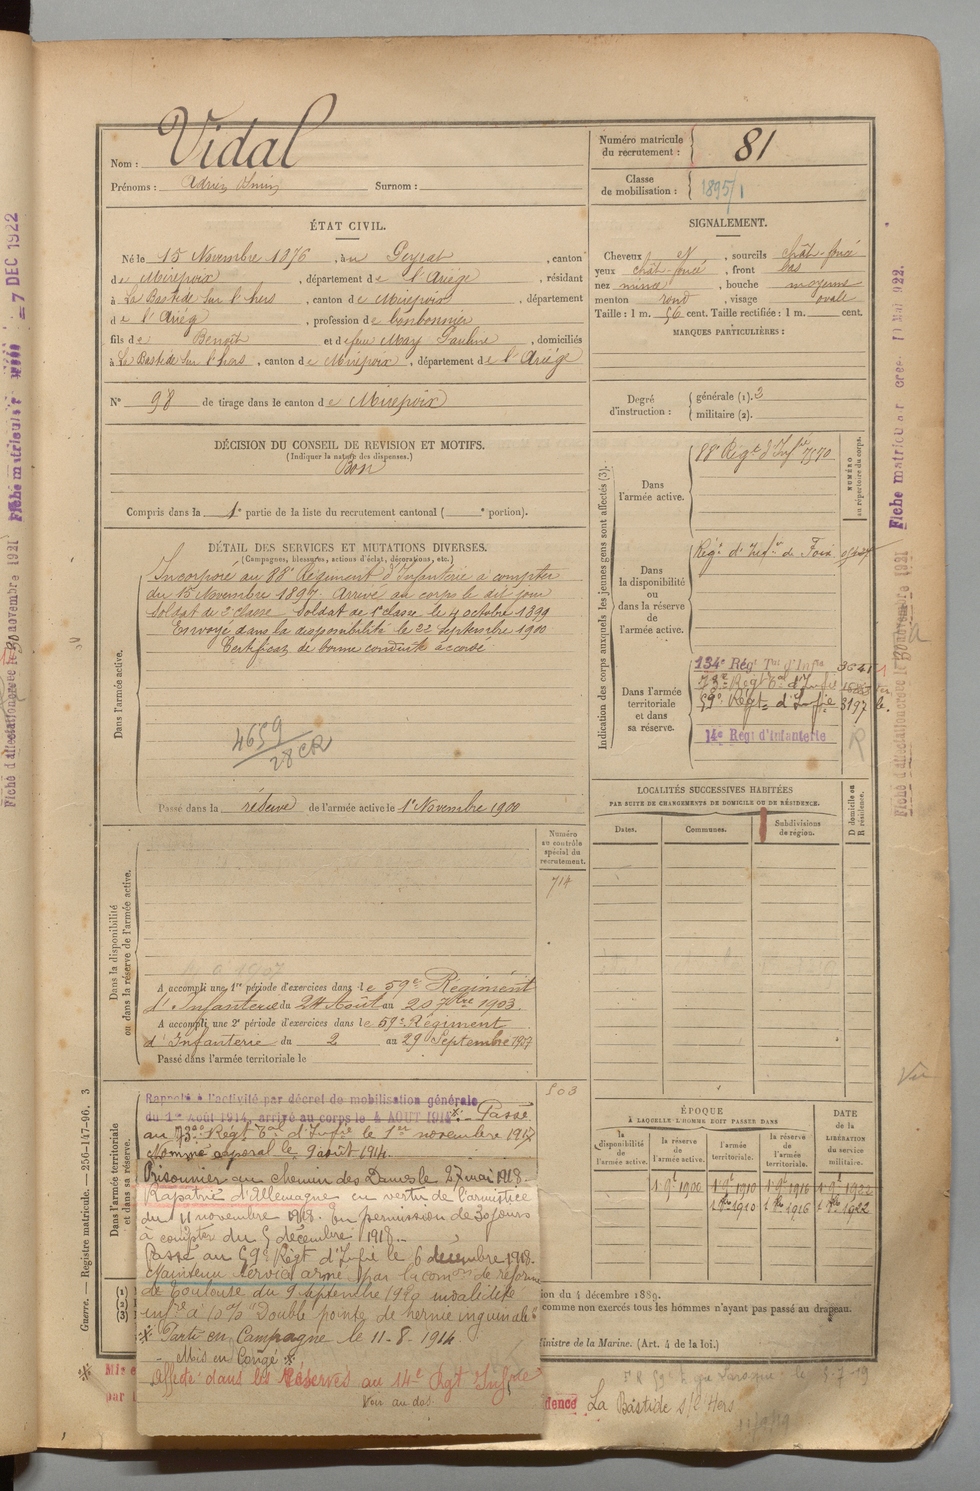 Nom : Vidal
Prénoms : Adrien Surnom :
Numéro matricule du recrutement : 81
Classe de mobilisation : 1895/1
ÉTAT CIVIL.
Né le 15 Novembre 1876, à Peyrat, canton
de Mirepoix, département de l'Ariège, résidant
à La Bastide sur l'hers, canton de Mirepoix, département
de l'Arièg, profession de bonbonnier
fils de Benoît et de feue May Pauline, domiciliés
à La Bastide sur l'hers, canton de Mirepoix, département de l'Ariège
N° 98 de tirage dans le canton de Mirepoix
DÉCISION DU CONSEIL DE REVISION ET MOTIFS.
(Indiquer la nature des dispenses.)
Bon
Compris dans la 1e partie de la liste du recrutement cantonal ( e portion).
SIGNALEMENT.
Cheveux et, sourcils chât-foncé
yeux chât-foncé, front bas
nez mince, bouche moyenne
menton rond, visage ovale
Taille : 1 m. 56 cent. Taille rectifiée : 1 m. cent.
MARQUES PARTICULIÈRES :
Degré d'instruction : générale (1). 3
militaire (2).
DÉTAIL DES SERVICES ET MUTATIONS DIVERSES.
(Campagnes, blessures, actions d'éclat, décorations, etc.)
Dans l'armée active.
Incorporé au 88e Régiment d'Infanterie à compter
du 15 Novembre 1897. Arrivé au corps le dit jour
Soldat de 2e classe. Soldat de 1e classe le 4 octobre 1899
Envoyé dans la disponibilité le 22 Septembre 1900
Certificat de bonne conduite accordé
4659
28 CR
Passé dans la réserve de l'armée active le 1er Novembre 1900
Indication des corps auxquels les jeunes gens sont affectés (3).
NUMÉRO au répertoire du corps.
Dans l'armée active.
88e Régt d'Infie 7570
Dans la disponibilité ou dans la réserve de l'armée active.
Régt d'Infie de Foix
Dans l'armée territoriale et dans sa réserve.
134e Régt Tal d'Infie
73e Régt Tal d'Infie
59e Régt d'Infie 3197
14e Régt d'Infanterie
R
LOCALITÉS SUCCESSIVES HABITÉES
PAR SUITE DE CHANGEMENTS DE DOMICILE OU DE RÉSIDENCE.
Dates. Communes. Subdivisions de région. D domicile ou R résidence.
Numéro au contrôle spécial du recrutement.
714
Dans la disponibilité ou dans la réserve de l'armée active.
A accompli une 1re période d'exercices dans le 59e Régiment
d'Infanterie du 24 Août au 20 7bre 1903.
A accompli une 2e période d'exercices dans le 59e Régiment
d'Infanterie du 2 au 29 Septembre 1907
Passé dans l'armée territoriale le
503
Dans l'armée territoriale et dans sa réserve.
Rappelé à l'activité par décret de mobilisation générale
du 1er Août 1914, arrivé au corps le 4 AOUT 1914 ※ Passé
au 73e Régt Tal d'Infie le 1er novembre 1917
Nommé caporal le 9 août 1914.
Prisonnier au chemin des Dames le 27 mai 1918.
Rapatrié d'Allemagne en vertu de l'armistice
du 11 novembre 1918. En permission de 30 jours
à compter du 5 décembre 1918.
Passé au 59e Régt d'Infie le 6 décembre 1918.
Maintenu service armé par la comon de réforme
de Toulouse du 9 septembre 1920 invalidité
infre à 10% "Double pointe de hernie inguinale"
※ Parti en Campagne le 11-8-1914
Mis en Congé ※
Affecté dans les Réserves au 14e Rgt Infrie
Voir au dos
ÉPOQUE
À LAQUELLE L'HOMME DOIT PASSER DANS
la disponibilité de l'armée active. la réserve de l'armée active. l'armée territoriale. la réserve de l'armée territoriale. DATE de la LIBÉRATION du service militaire.
1 9e 1900 1 9e 1910 1 9e 1916 1 9e 1922
1 8re 1910 1 8re 1916 1 8re 1922
(1)
(2)
(3)
ion du 4 décembre 1889.
comme non exercés tous les hommes n'ayant pas passé au drapeau.
Ministre de la Marine. (Art. 4 de la loi.)
※ Mis e
par
dence La Bastide s/l'Hers
Guerre. — Registre matricule. — 256-147-96. 3
Vu
= 7 DEC 1922
Fiche matricule
Fiche d'affectation créée le 30 novembre 1921
Fiche matricule créée 922.
Fiche d'affectation créée le 30 novembre 1921